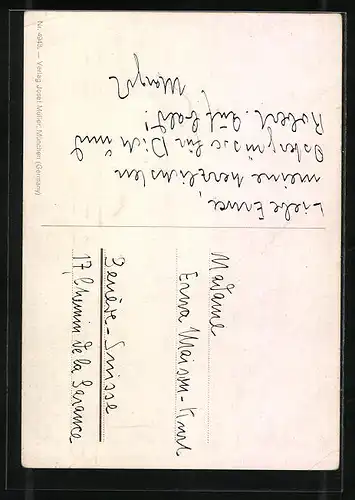 Liebe Erna,
meine herzlichsten
Ostergrüsse für Dich und
Robert. Auf bald!
Margrit
Madame
Erna Maison-Knorr
Genève-Suisse
17, Chemin de la Garance
Nr. 4945. — Verlag Josef Müller, München (Germany)